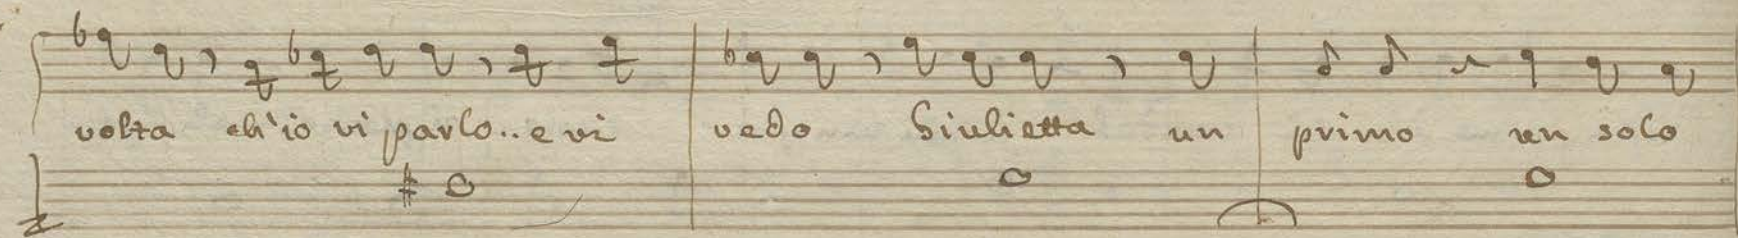 volta ch'io vi parlo.. e vi vedo Giulietta un primo un solo